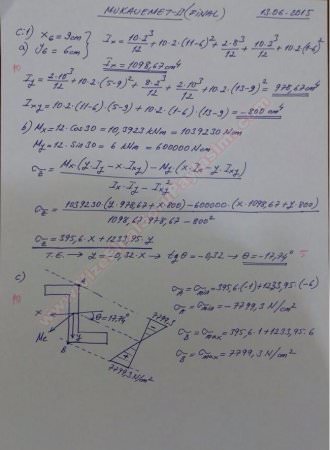 MUKAVEMET-II (FİNAL) 13.06-2015
C.1) x_G = 9cm
a) y_G = 6cm
I_x = 10.2³/12 + 10.2.(11-6)² + 2.8³/12 + 10.2³/12 + 10.2.(1-6)²
I_x = 1098,67cm⁴
10
I_y = 2.10³/12 + 10.2.(5-9)² + 8.2³/12 + 2.10³/12 + 10.2.(13-9)² = 978,67cm⁴
I_xy = 10.2.(11-6).(5-9) + 10.2.(1-6).(13-9) = -800cm⁴
b) M_x = 12.Cos30 = 10,3923 kNm = 1039230 Ncm
M_y = 12.Sin30 = 6 kNm = 600000 Ncm
σ_z = M_x(y.I_y - x.I_xy) - M_y(x.I_x - y.I_xy) / I_x.I_y - I_xy
σ_z = 1039230(y.978,67 + x.800) - 600000.(x.1098,67 + y.800) / 1098,67.978,67 - 800²
σ_z = 395,6.x + 1233,95.y
T.E. → y = -0,32.x → tgθ = -0,32 → θ = -17,74°
c)
10
A
σ_A = 395,6.(-1) + 1233,95.(-6)
σ_A = σ_min = -7799,3 N/cm²
7799,3
x
θ = 17,74°
σ_B = σ_max = 395,6.1 + 1233,95.6
σ_B = σ_max = 7799,3 N/cm²
B
y
7799,3 N/cm²